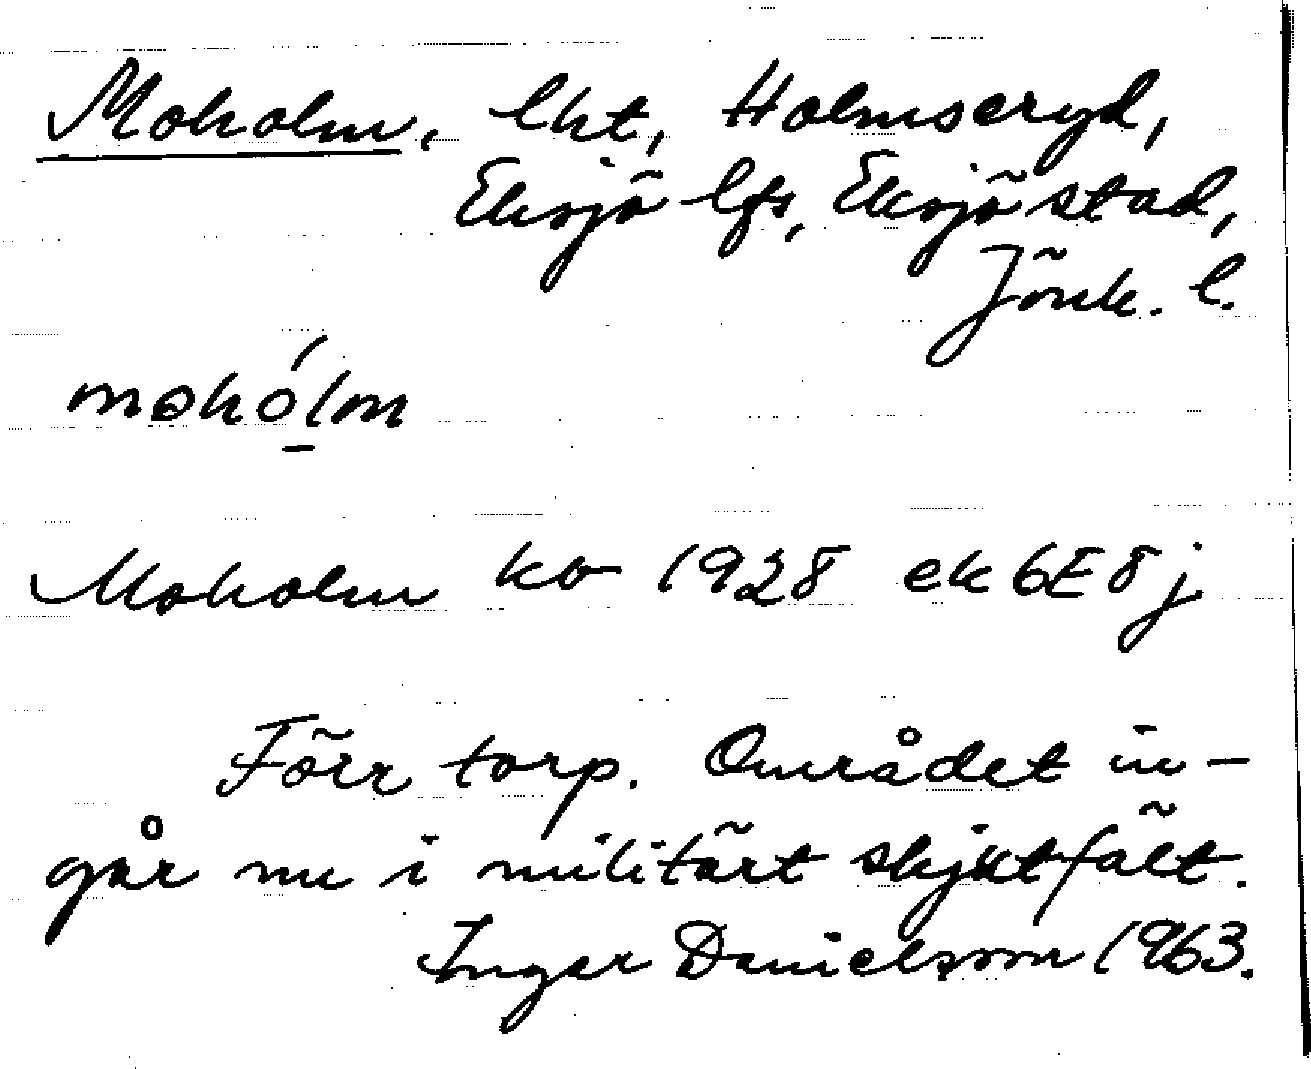 Moholm, lht, Holmseryd,
Eksjö lfs, Eksjö stad,
Jönk. l.
møhólm
Moholm kb 1928 ek 6E8j
Förr torp. Området in-
går nu i militärt skjutfält.
Ingar Danielsson 1963.